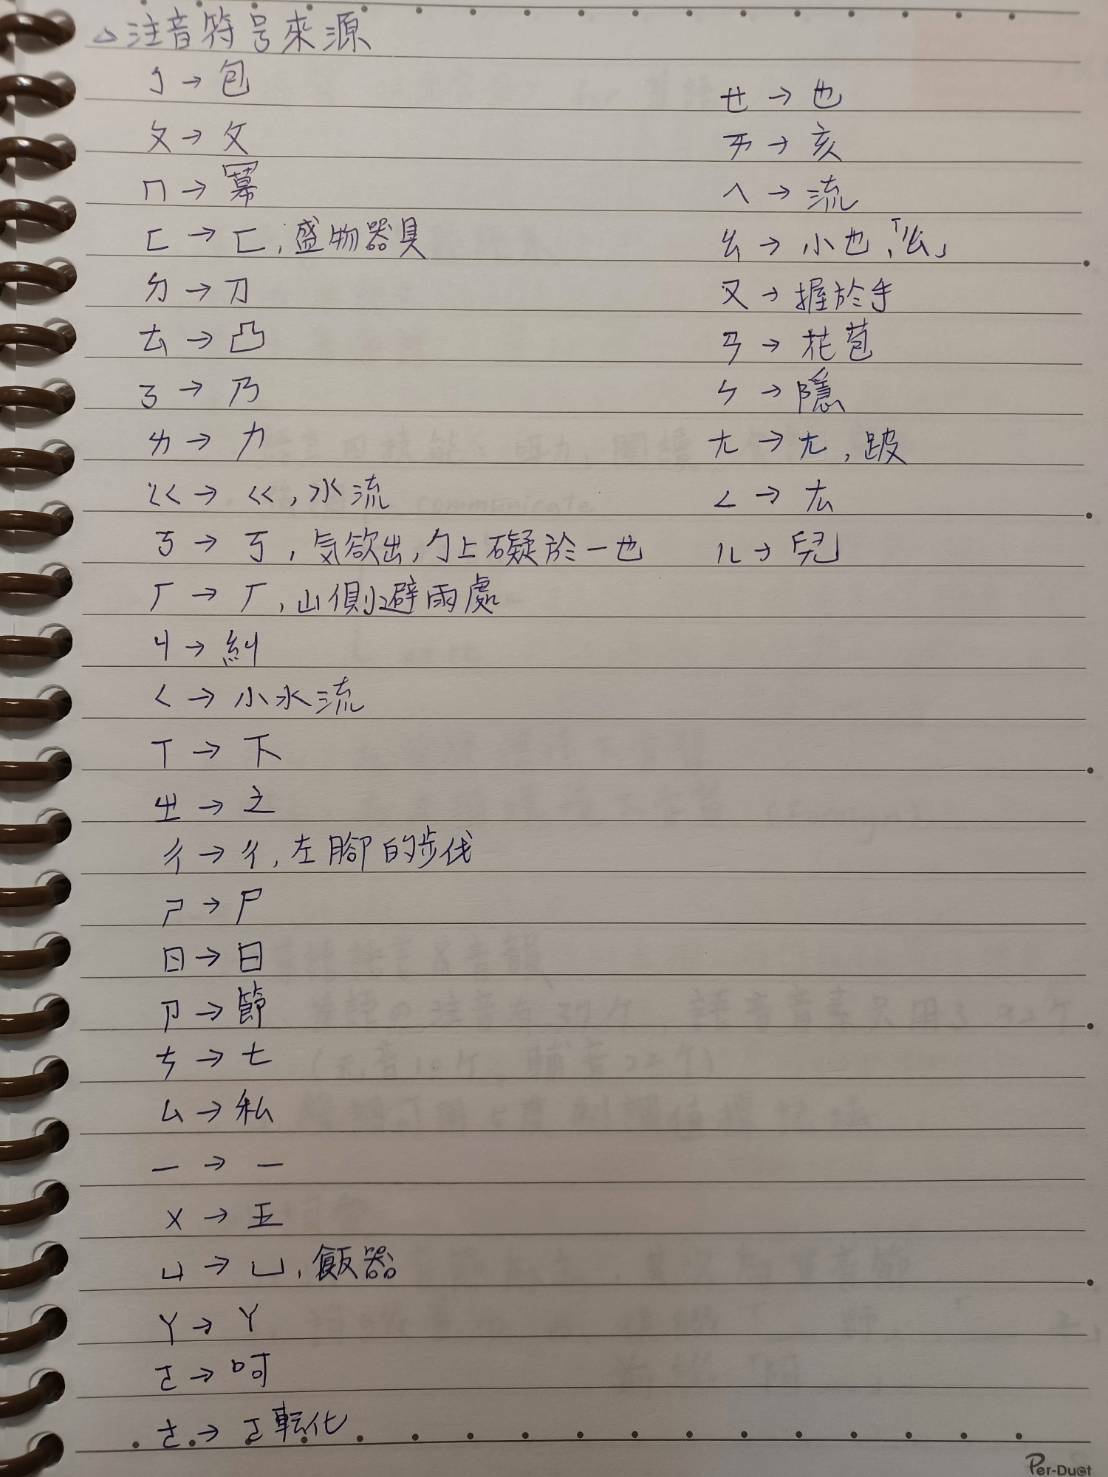 △注音符号來源
ㄅ→包
ㄆ→攵
ㄇ→冪
ㄈ→匚,盛物器具
ㄉ→刀
ㄊ→凸
ㄋ→乃
ㄌ→力
ㄍ→巜,水流
ㄎ→丂,気欲出,勹上礙於一也
ㄏ→厂,山側避雨處
ㄐ→糾
ㄑ→小水流
ㄒ→下
ㄓ→之
ㄔ→彳,左腳的步伐
ㄕ→尸
ㄖ→日
ㄗ→節
ㄘ→七
ㄙ→私
ㄧ→一
ㄨ→五
ㄩ→凵,飯器
ㄚ→Y
ㄛ→呵
ㄜ→ㄛ転化
ㄝ→也
ㄞ→亥
ㄟ→流
ㄠ→小也,「幺」
ㄡ→握於手
ㄢ→花苞
ㄣ→隱
ㄤ→尢,跛
ㄥ→厷
ㄦ→兒
Per-Duet